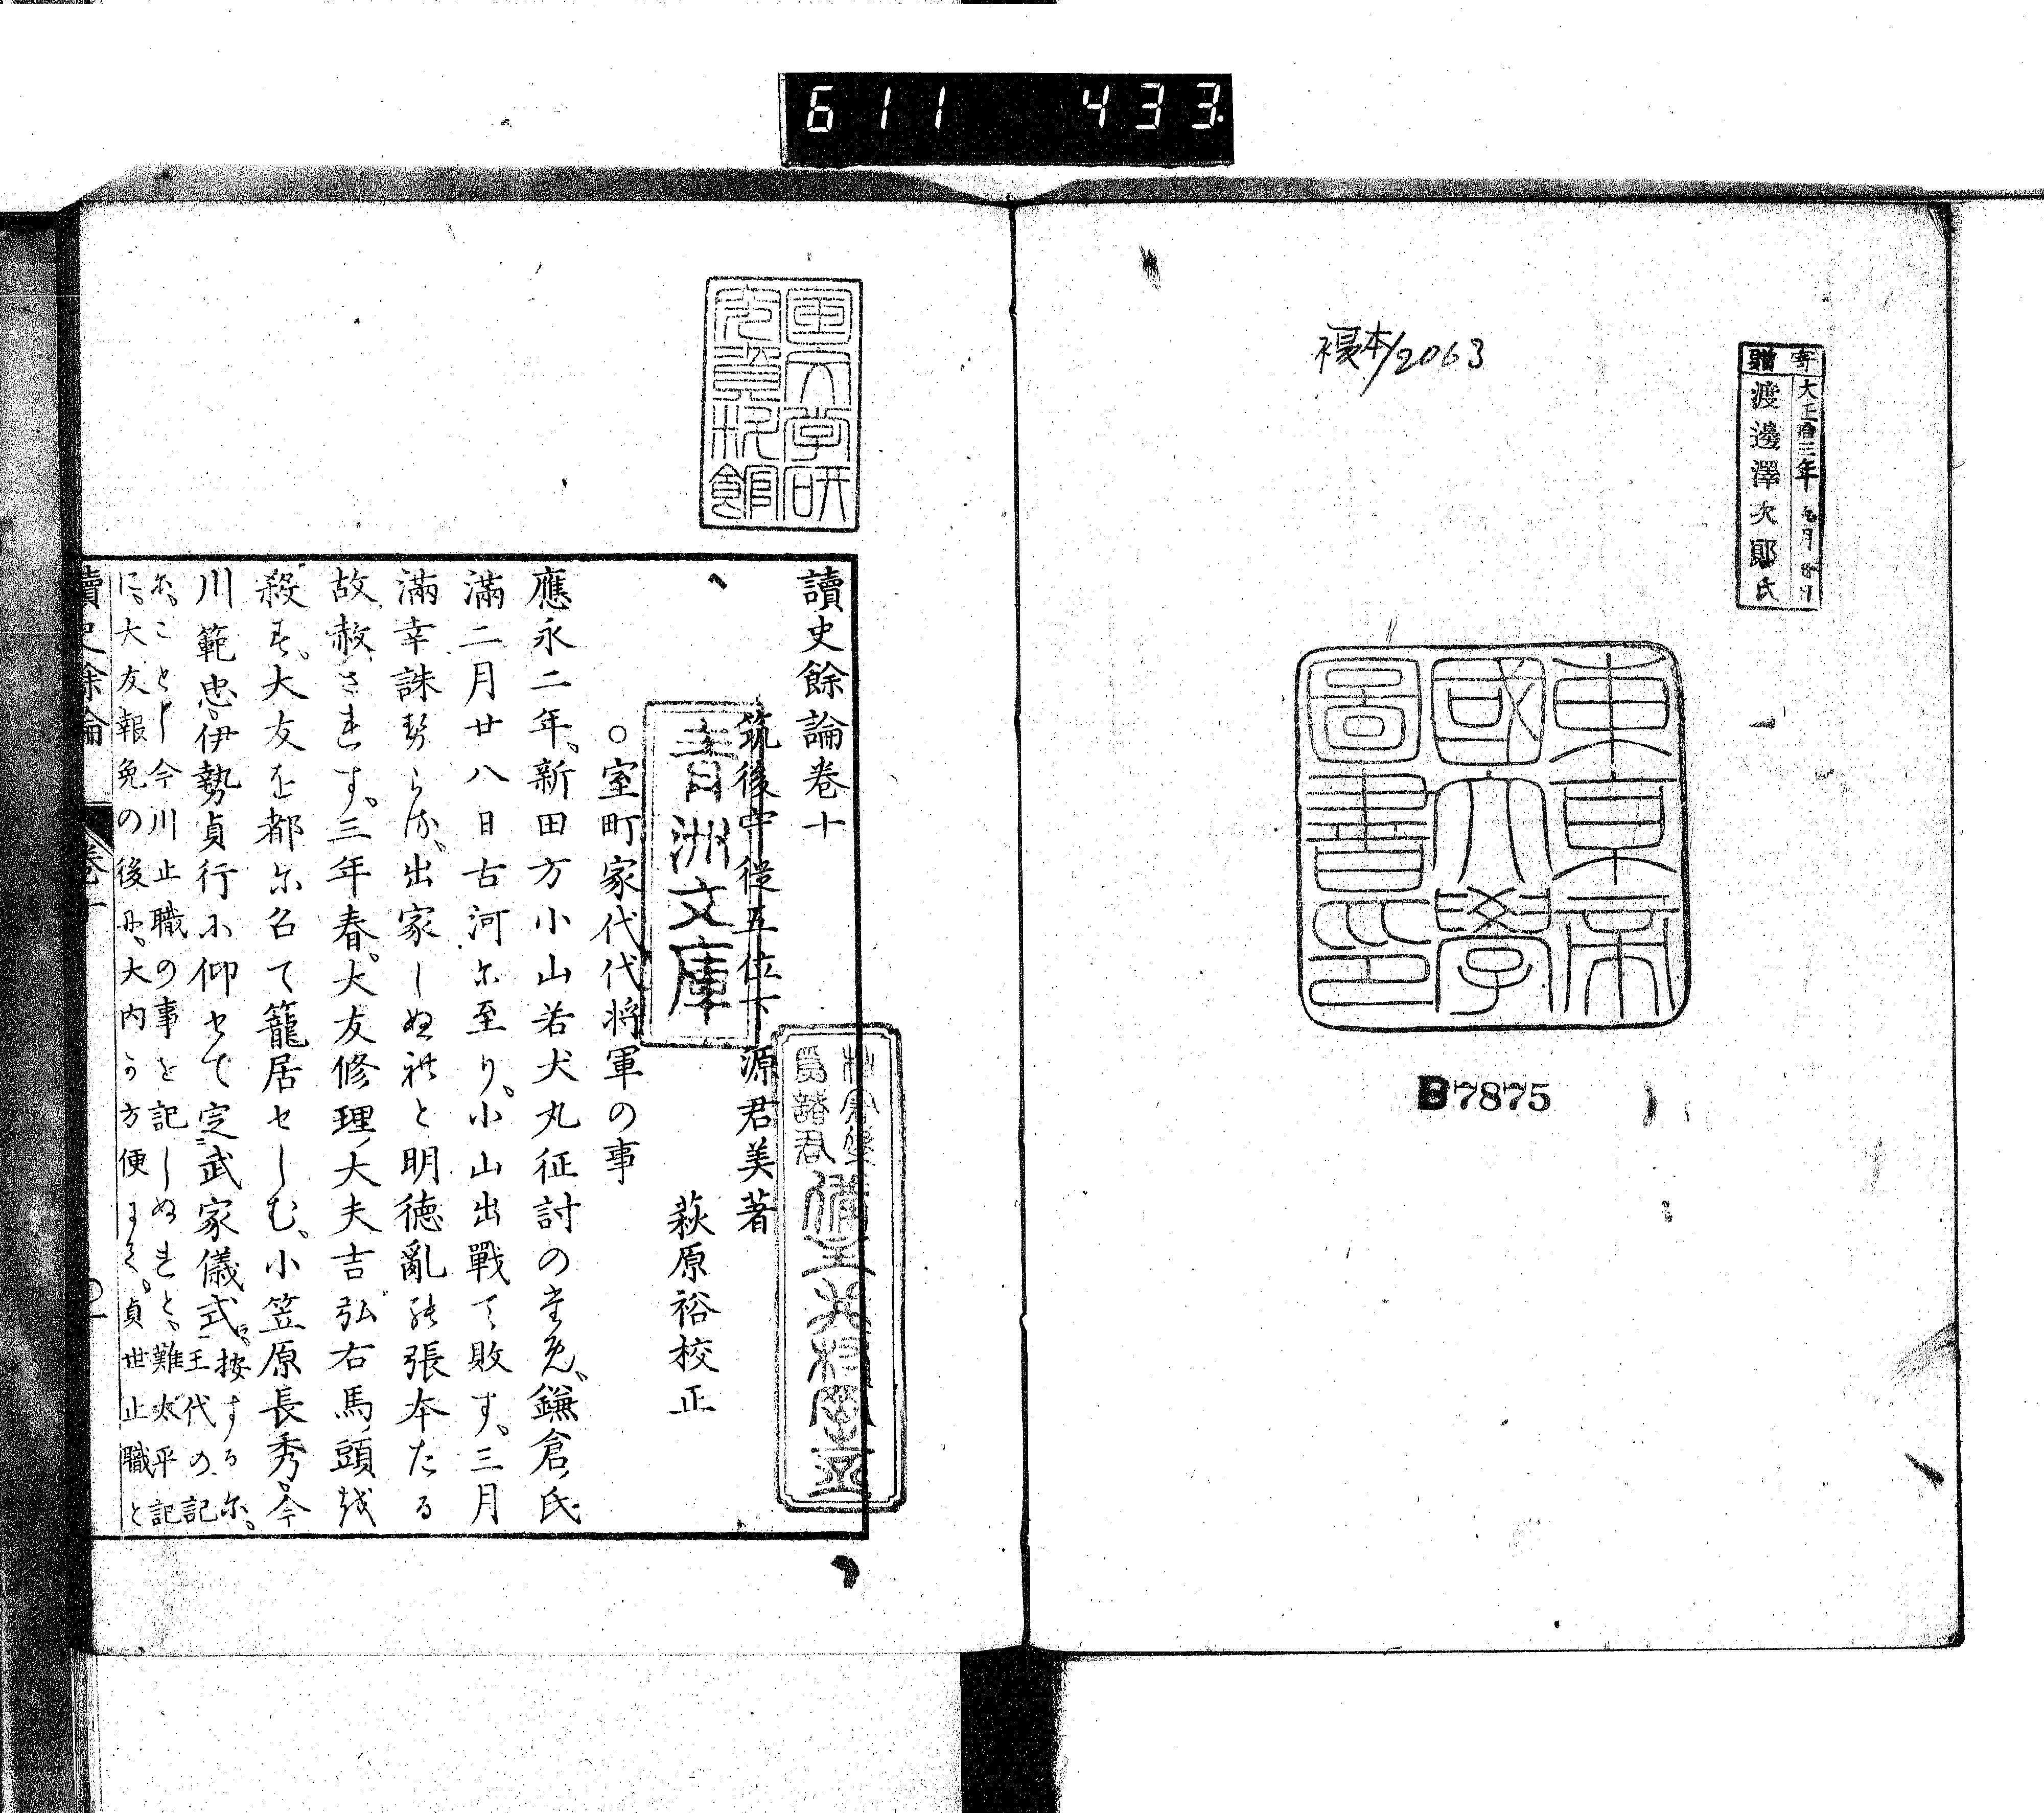 611 433.
寄贈
大正拾三年九月
渡邊澤次郎氏
複本/2063
東京帝
國大學
圖書印
B7875
国文学研
究資料館
讀史餘論卷十
筑後守從五位下源君美著
青洲文庫
萩原裕校正
○室町家代代将軍の事
應永二年、新田方小山若犬丸征討のため、鎌倉氏
滿二月廿八日古河尓至り。小山出戰て敗す。三月
滿幸誅せらる。出家しぬれと明徳亂の張本たる
故赦されす。三年春。大友修理大夫吉弘右馬頭越
殺す。大友を都尓召て籠居セしむ、小笠原長秀。今
川範忠。伊勢貞行小仰せて定武家儀式。按するに。王代の記
に。ことし今川止職の事を記しぬれと、難太平記
に。大友報免の後に。大内か方便にて。貞世止職と
讀史餘論 卷十